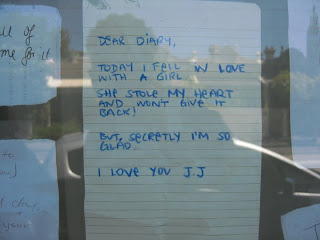 ll of
me for it
DEAR DIARY,
TODAY I FELL IN LOVE
WITH A GIRL
SHE STOLE MY HEART
AND WON'T GIVE IT
BACK!
BUT, SECRETLY I'M SO
GLAD.
I LOVE YOU J.J